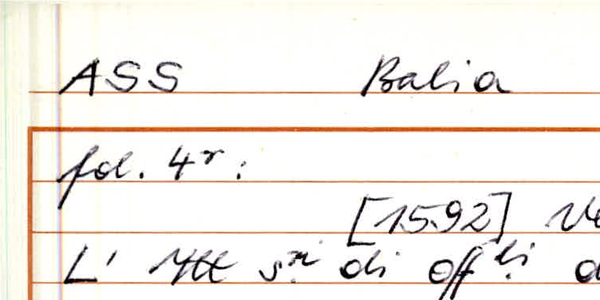 ASS Balia
fol. 4r:
[1592]
L' Ill sri di offli